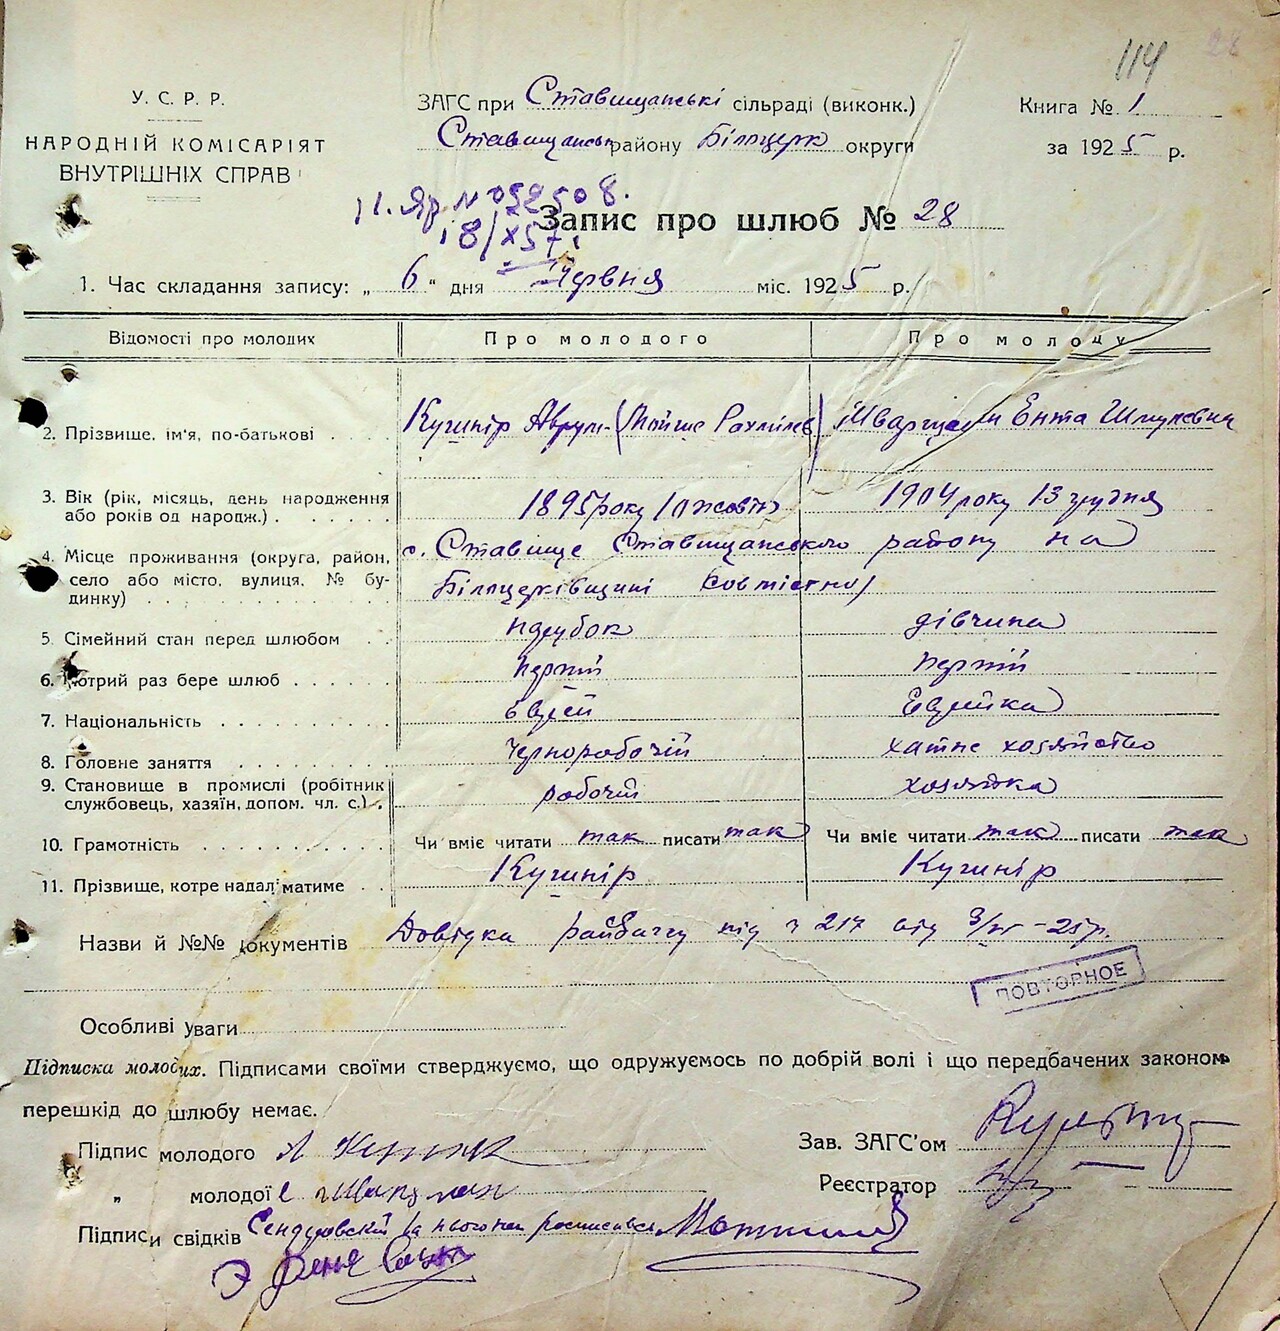 114 28
У. С. Р. Р.
НАРОДНІЙ КОМІСАРІЯТ
ВНУТРІШНІХ СПРАВ
ЗАГС при Ставищанські сільраді (виконк.)
Ставищанськ району Білоцерк округи
Книга № 1
за 1925 р.
11. Яр N 032508.
18/X 57
Запис про шлюб № 28
1. Час складання запису: „ 6 " дня Червня міс. 1925 р.
Відомості про молодих Про молодого Про молоду
2. Прізвище, ім'я, по-батькові Кушнір Аврум-(Мойше Рахмілев) Шварцман Ента Шмулевна
3. Вік (рік, місяць, день народження 1895 року 1 жовтн 1904 року 13 грудня
або років од народж.)
4. Місце проживання (округа, район, с. Ставище Ставищанського району на
село або місто, вулиця, № бу- Білоцерківщині совместно
динку)
5. Сімейний стан перед шлюбом парубок дівчина
6. Котрий раз бере шлюб перший перший
7. Національність Еврей Еврейка
8. Головне заняття Чорноробочій хатне хозяйство
9. Становище в промислі (робітник
службовець, хазяїн, допом. чл. с.) робочий хозяйка
10. Грамотність Чи вміє читати так писати так Чи вміє читати так писати так
11. Прізвище, котре надалі матиме Кушнір Кушнір
Назви й №№ документів Довідка від 217 від
ПОВТОРНОЕ
Особливі уваги
Підписка молодих. Підписами своїми стверджуємо, що одружуємось по добрій волі і що передбачених законом
перешкід до шлюбу немає.
Підпис молодого
Зав. ЗАГС'ом
„ молодої Е Шварцман
Реєстратор
Підписи свідків